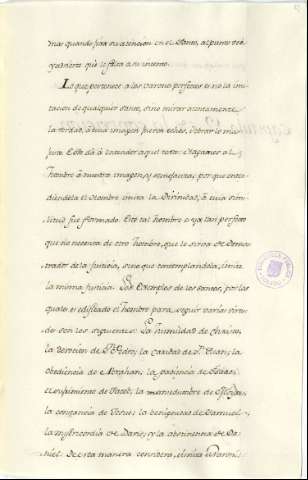 mas quando fixa su atencion en el Santo, al punto vè
ya la que le falta a su intento.
Lo que pertenece a los varones perfectos es no la imi-
tacion de qualquier santo, sino mirar atentamente
la verdad, à cuia imagen fueron echos, è obrar lo me-
jor. Esto dà à entender aquel texto: Hagamos al
hombre à nuestra imagen, y semejanza: por que enten-
diendola el Hombre imita la Divinidad, à cuia simi-
litud fue formado. Este tal hombre es ya tan perfecto
que no necesita de otro hombre, que le sirva de demos-
trador de la Justicia, sino que contemplandola, imita
la misma Justicia. Los Exemplos de los santos, por los
quales es edificado el hombre para seguir varias virtu-
des son los siguientes: La humildad de
la devocion de Sn. Pedro; la caridad de Sn. Juan; la
obediencia de Abrahan; la paciencia de
el sufrimiento de Jacob; la mansedumbre de Moises;
la constancia de Josue; la benignidad de Samuel;
la misericordia de David; y la abstinencia de Da-
niel. De esta manera considera, è imita el varon